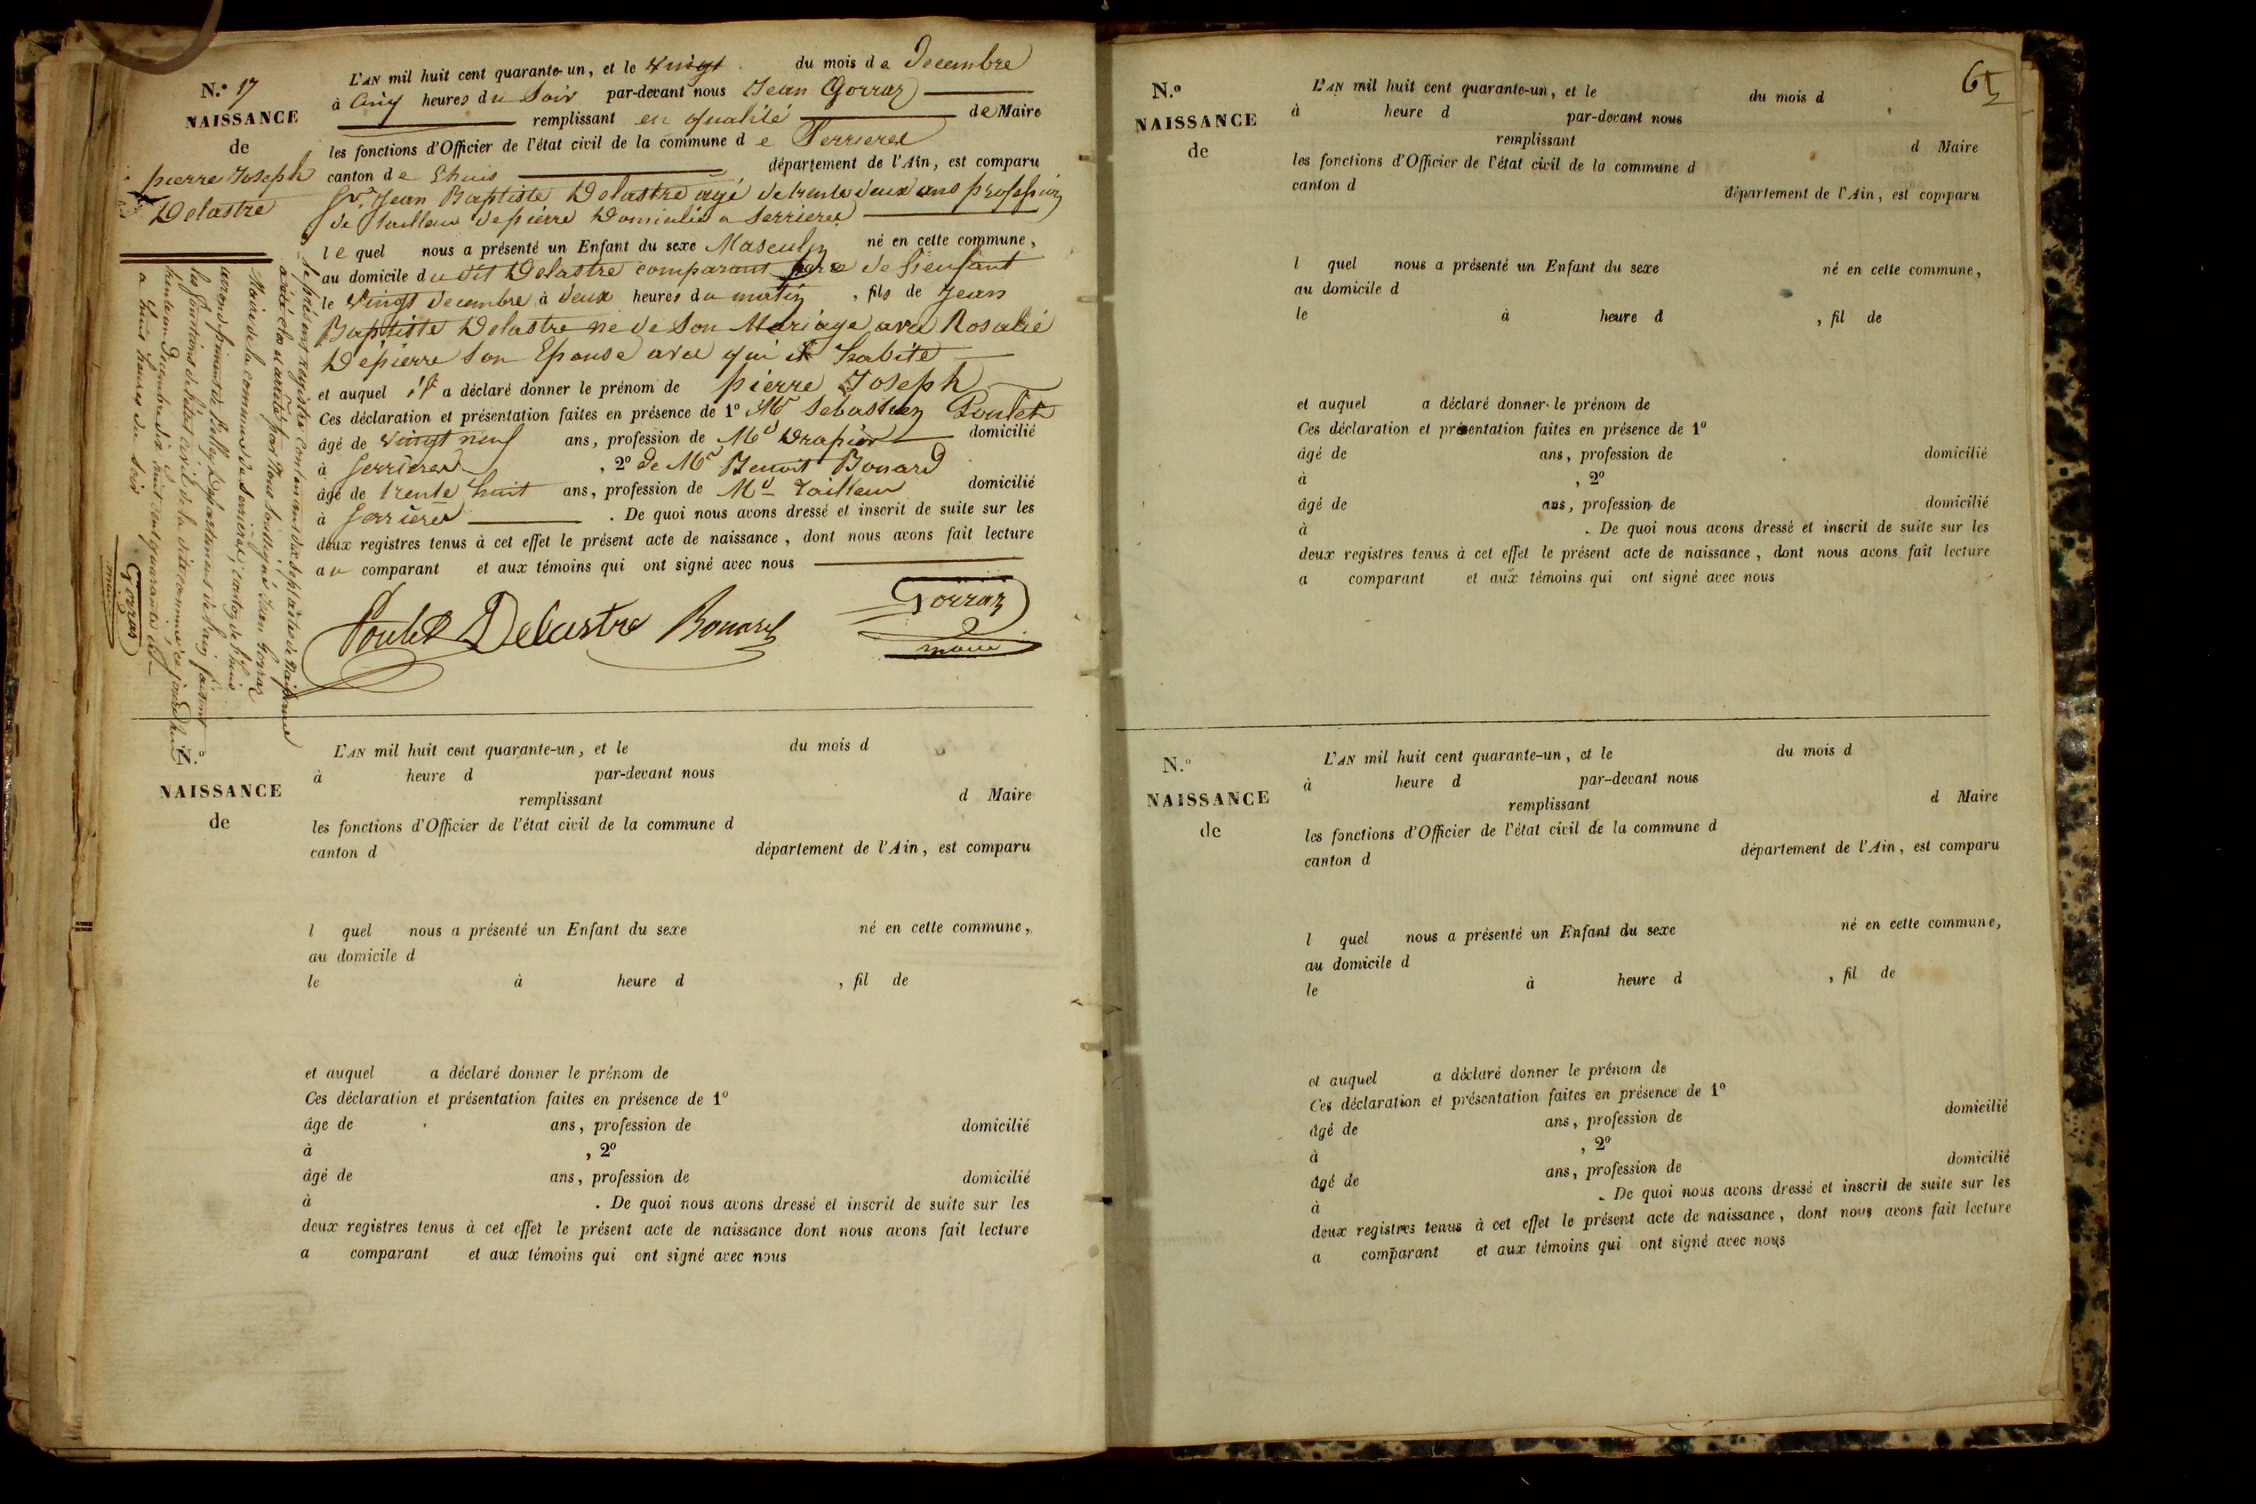 N.° 17
NAISSANCE
de
pierre Joseph
Delastre
L'AN mil huit cent quarante-un, et le vingt du mois de Decembre
à Cinq heures du Soir par-devant nous Jean Gorraz
remplissant en qualité de Maire
les fonctions d'Officier de l'état civil de la commune de Serrieres
canton de Lhuis département de l'Ain, est comparu
Sr. Jean Baptiste Delastre agé de trente deux ans profession
de tailleur de pierre Domicilié a Serrieres
le quel nous a présenté un Enfant du sexe Masculin né en cette commune,
au domicile du dit Delastre comparant père de l'enfant
le vingt Decembre à deux heures du matin, fils de Jean
Baptiste Delastre né de Son Mariage avec Rosalie
Depierre Son Epouse avec qui il habite
et auquel il a déclaré donner le prénom de pierre Joseph
Ces déclaration et présentation faites en présence de 1° Mr Sebastien Poulet
âgé de vingt neuf ans, profession de Md Drapier domicilié
à Serrieres, 2° de Mr Benoit Bonard
âgé de trente huit ans, profession de Md Tailleur domicilié
à Serrieres. De quoi nous avons dressé et inscrit de suite sur les
deux registres tenus à cet effet le présent acte de naissance, dont nous avons fait lecture
au comparant et aux témoins qui ont signé avec nous
Poulet Delastre Bonard Gorraz
maire
Le présent registre contenant dix sept actes de Naissance
a été clos et arrêté par Nous Soussigné Jean Gorraz
Maire de la commune de Serrieres, canton de Lhuis
arrondissement de Belley Departement de l'ain faisant
les fonctions de l'état civil de la dite commune ce jourd'hui
trente un Decembre dix huit cent quarante un
a huit heures du soir
Gorraz
maire
N.°
NAISSANCE
de
L'AN mil huit cent quarante-un, et le du mois d
à heure d par-devant nous
remplissant d Maire
les fonctions d'Officier de l'état civil de la commune d
canton d département de l'Ain, est comparu
l quel nous a présenté un Enfant du sexe né en cette commune,
au domicile d
le à heure d , fil de
et auquel a déclaré donner le prénom de
Ces déclaration et présentation faites en présence de 1°
âge de ans, profession de domicilié
à , 2°
âgé de ans, profession de domicilié
à . De quoi nous avons dressé et inscrit de suite sur les
deux registres tenus à cet effet le présent acte de naissance dont nous avons fait lecture
a comparant et aux témoins qui ont signé avec nous
65
N.°
NAISSANCE
de
L'AN mil huit cent quarante-un, et le du mois d
à heure d par-devant nous
remplissant d Maire
les fonctions d'Officier de l'état civil de la commune d
canton d département de l'Ain, est comparu
l quel nous a présenté un Enfant du sexe né en cette commune,
au domicile d
le à heure d , fil de
et auquel a déclaré donner le prénom de
Ces déclaration et présentation faites en présence de 1°
âgé de ans, profession de domicilié
à , 2°
âgé de ans, profession de domicilié
à . De quoi nous avons dressé et inscrit de suite sur les
deux registres tenus à cet effet le présent acte de naissance, dont nous avons fait lecture
a comparant et aux témoins qui ont signé avec nous
N.°
NAISSANCE
de
L'AN mil huit cent quarante-un, et le du mois d
à heure d par-devant nous
remplissant d Maire
les fonctions d'Officier de l'état civil de la commune d
canton d département de l'Ain, est comparu
l quel nous a présenté un Enfant du sexe né en cette commune,
au domicile d
le à heure d , fil de
et auquel a déclaré donner le prénom de
Ces déclaration et présentation faites en présence de 1°
âgé de ans, profession de domicilié
à , 2°
âgé de ans, profession de domicilié
à . De quoi nous avons dressé et inscrit de suite sur les
deux registres tenus à cet effet le présent acte de naissance, dont nous avons fait lecture
a comparant et aux témoins qui ont signé avec nous